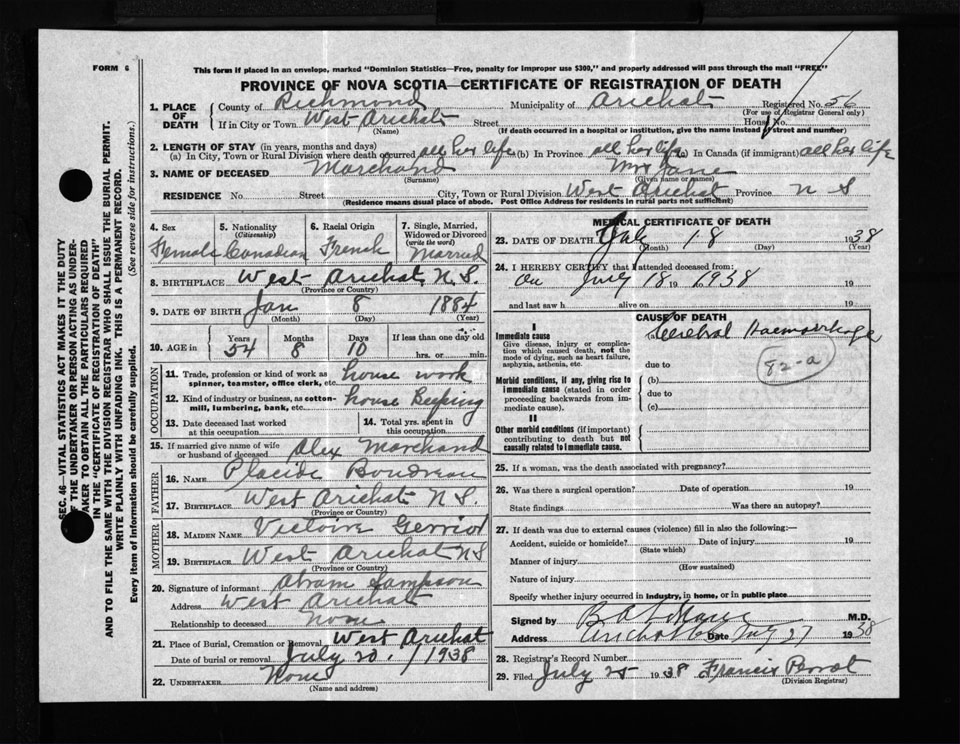 FORM 6
This form if placed in an envelope, marked "Dominion Statistics—Free, penalty for improper use $300," and properly addressed will pass through the mail "FREE"
PROVINCE OF NOVA SCOTIA—CERTIFICATE OF REGISTRATION OF DEATH
1. PLACE OF DEATH County of Richmond Municipality of Arichat Registered No. 56
(For use of Registrar General only)
If in City or Town West Arichat Street House No.
(Name) (If death occurred in a hospital or institution, give the name instead of street and number)
2. LENGTH OF STAY (in years, months and days)
(a) In City, Town or Rural Division where death occurred all her life (b) In Province all her life (c) In Canada (if immigrant) all her life
3. NAME OF DECEASED Marchand Mrs Jane
(Surname) (Given name or names)
RESIDENCE No. Street City, Town or Rural Division West Arichat Province N S
(Residence means usual place of abode. Post Office Address for residents in rural parts not sufficient)
4. Sex Female
5. Nationality (Citizenship) Canadian
6. Racial Origin French
7. Single, Married, Widowed or Divorced (write the word) Married
8. BIRTHPLACE West Arichat, N.S.
(Province or Country)
9. DATE OF BIRTH Jan 8 1884
(Month) (Day) (Year)
10. AGE in Years 54 Months 8 Days 10 If less than one day old hrs. or min.
OCCUPATION
11. Trade, profession or kind of work as spinner, teamster, office clerk, etc. house work
12. Kind of industry or business, as cotton-mill, lumbering, bank, etc. house Keeping
13. Date deceased last worked at this occupation
14. Total yrs. spent in this occupation
15. If married give name of wife or husband of deceased Alex Marchand
FATHER
16. NAME Placide Boudreau
17. BIRTHPLACE West Arichat N S.
(Province or Country)
MOTHER
18. MAIDEN NAME Victoire
19. BIRTHPLACE West Arichat N S
(Province or Country)
20. Signature of informant Abram Sampson
Address West Arichat
Relationship to deceased None
21. Place of Burial, Cremation or Removal West Arichat
Date of burial or removal July 20. 1938
22. UNDERTAKER None
(Name and address)
MEDICAL CERTIFICATE OF DEATH
23. DATE OF DEATH July 18 1938
(Month) (Day) (Year)
24. I HEREBY CERTIFY that I attended deceased from:
On July 18 19 1938 19
and last saw h alive on 19
CAUSE OF DEATH
I
Immediate cause
Give disease, injury or complication which caused death, not the mode of dying, such as heart failure, asphyxia, asthenia, etc.
(a) Cerebral Haemorrhage
due to
82-a
Morbid conditions, if any, giving rise to immediate cause (stated in order proceeding backwards from immediate cause).
(b)
due to
(c)
II
Other morbid conditions (if important) contributing to death but not causally related to immediate cause.
25. If a woman, was the death associated with pregnancy?
26. Was there a surgical operation? Date of operation 19
State findings Was there an autopsy?
27. If death was due to external causes (violence) fill in also the following:—
Accident, suicide or homicide? Date of injury 19
(State which)
Manner of injury
(How sustained)
Nature of injury
Specify whether injury occurred in industry, in home, or in public place
Signed by M.D.
Address Arichat Date July 27 1938
28. Registrar's Record Number
29. Filed July 25 1938 Francis
(Division Registrar)
SEC. 46—VITAL STATISTICS ACT MAKES IT THE DUTY
OF THE UNDERTAKER OR PERSON ACTING AS UNDER-
TAKER TO OBTAIN ALL THE PARTICULARS REQUIRED
IN THE "CERTIFICATE OF REGISTRATION OF DEATH"
AND TO FILE THE SAME WITH THE DIVISION REGISTRAR WHO SHALL ISSUE THE BURIAL PERMIT.
WRITE PLAINLY WITH UNFADING INK. THIS IS A PERMANENT RECORD.
Every item of information should be carefully supplied. (See reverse side for instructions.)